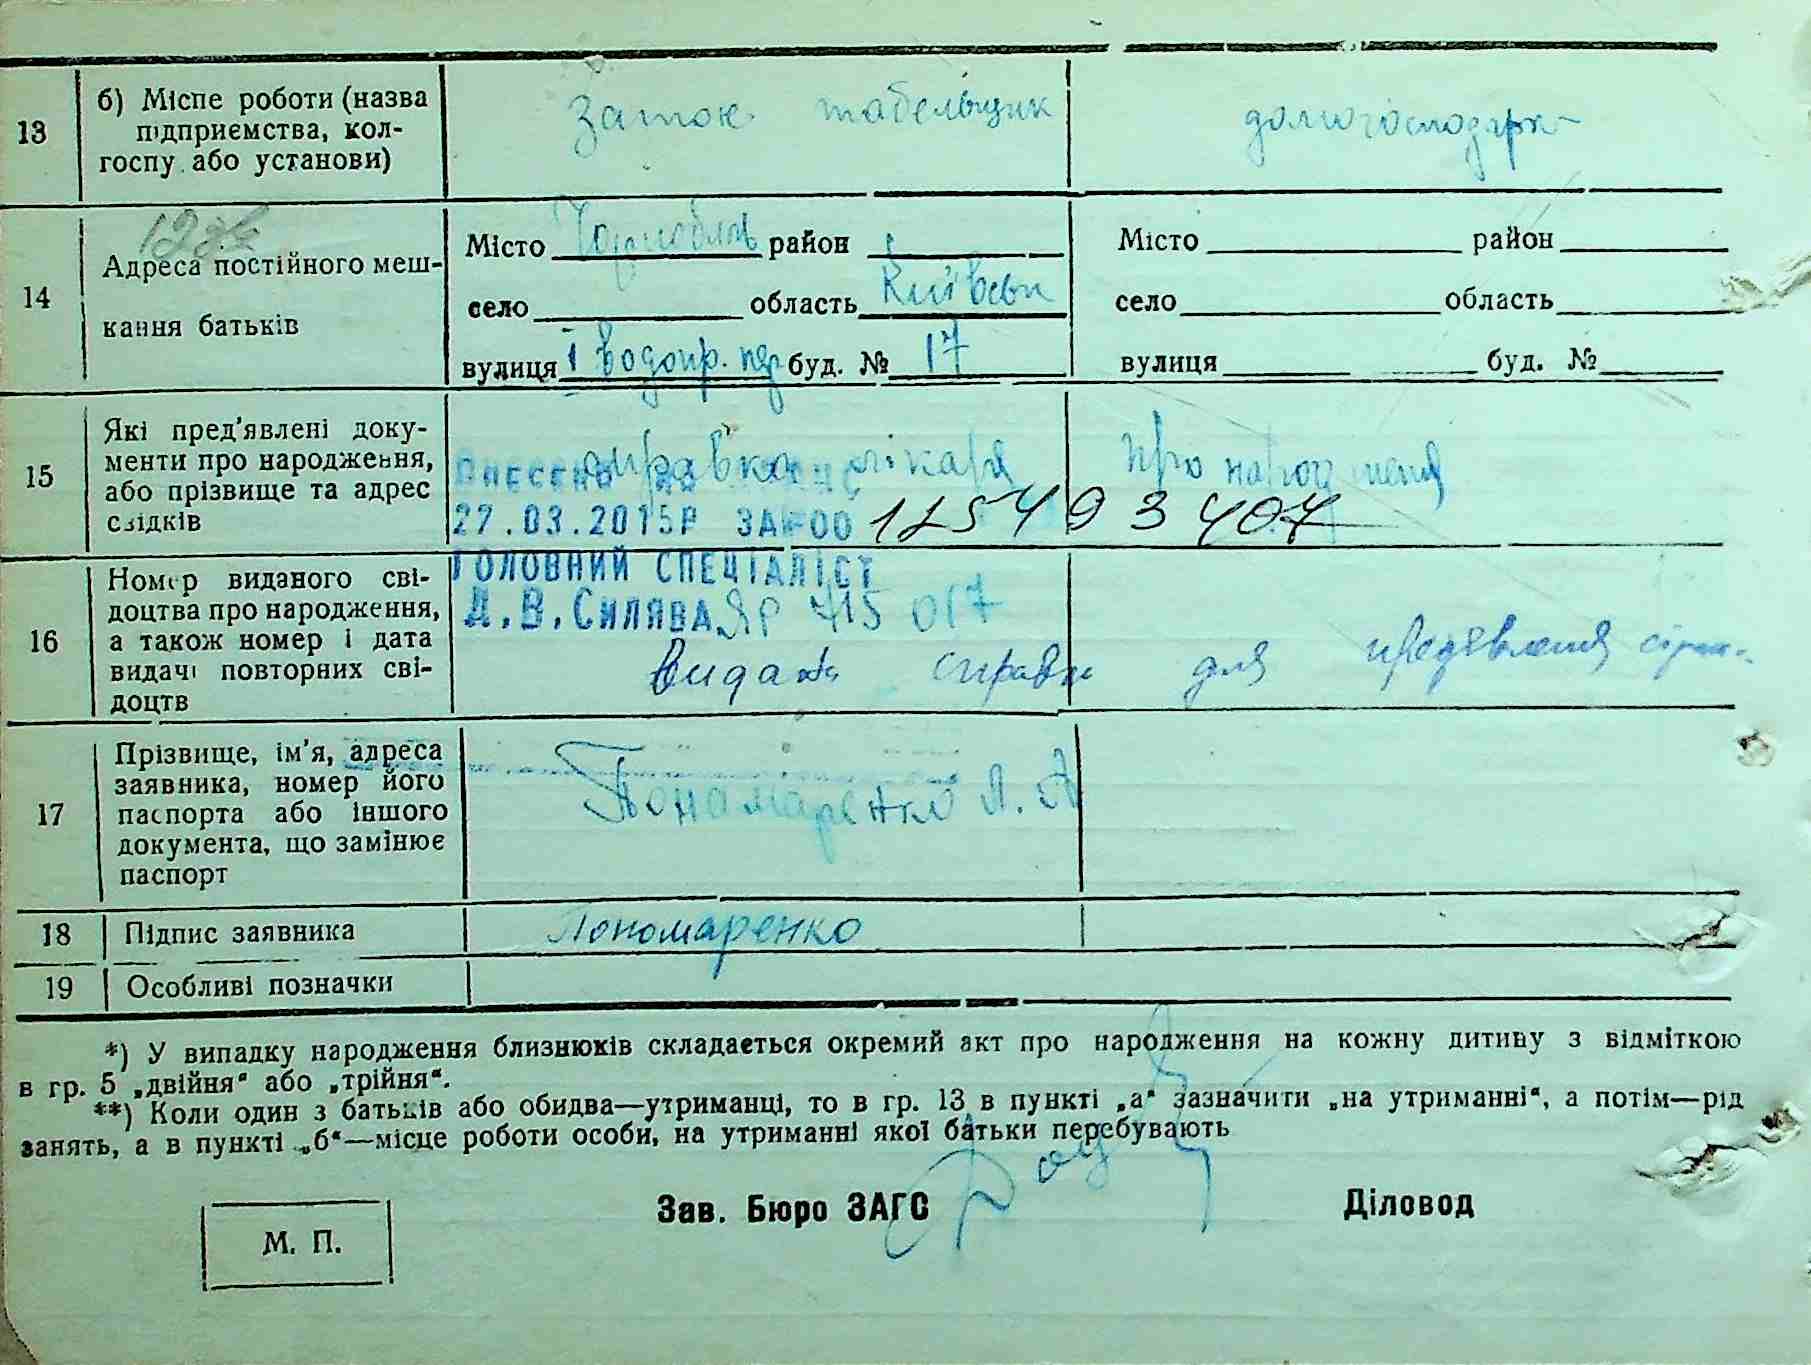 13
б) Місце роботи (назва
підприємства, кол-
госпу або установи)
Заток табельщик
домогосподарк
14
Адреса постійного меш-
кання батьків
Місто Чорнобиль район
село область Київськ
вулиця 1 водопр. пер буд. № 17
Місто район
село область
вулиця буд. №
15
Які пред'явлені доку-
менти про народження,
або прізвище та адрес
свідків
справка лікаря про народження
ВНЕСЕНО ДО
27.03.2015Р ЗА №00 125493407
ГОЛОВНИЙ СПЕЦІАЛІСТ
Д.В.СИЛЯВА
16
Номер виданого сві-
доцтва про народження,
а також номер і дата
видачі повторних сві-
доцтв
ЯР 715017
видана справка для предявлення
17
Прізвище, ім'я, адреса
заявника, номер його
паспорта або іншого
документа, що замінює
паспорт
Пономаренко А. А
18
Підпис заявника
Пономаренко
19
Особливі позначки
*) У випадку народження близнюків складається окремий акт про народження на кожну дитину з відміткою
в гр. 5 „двійня" або „трійня".
**) Коли один з батьків або обидва—утриманці, то в гр. 13 в пункті „а" зазначити „на утриманні", а потім—рід
занять, а в пункті „б"—місце роботи особи, на утриманні якої батьки перебувають
Зав. Бюро ЗАГС
Діловод
М. П.